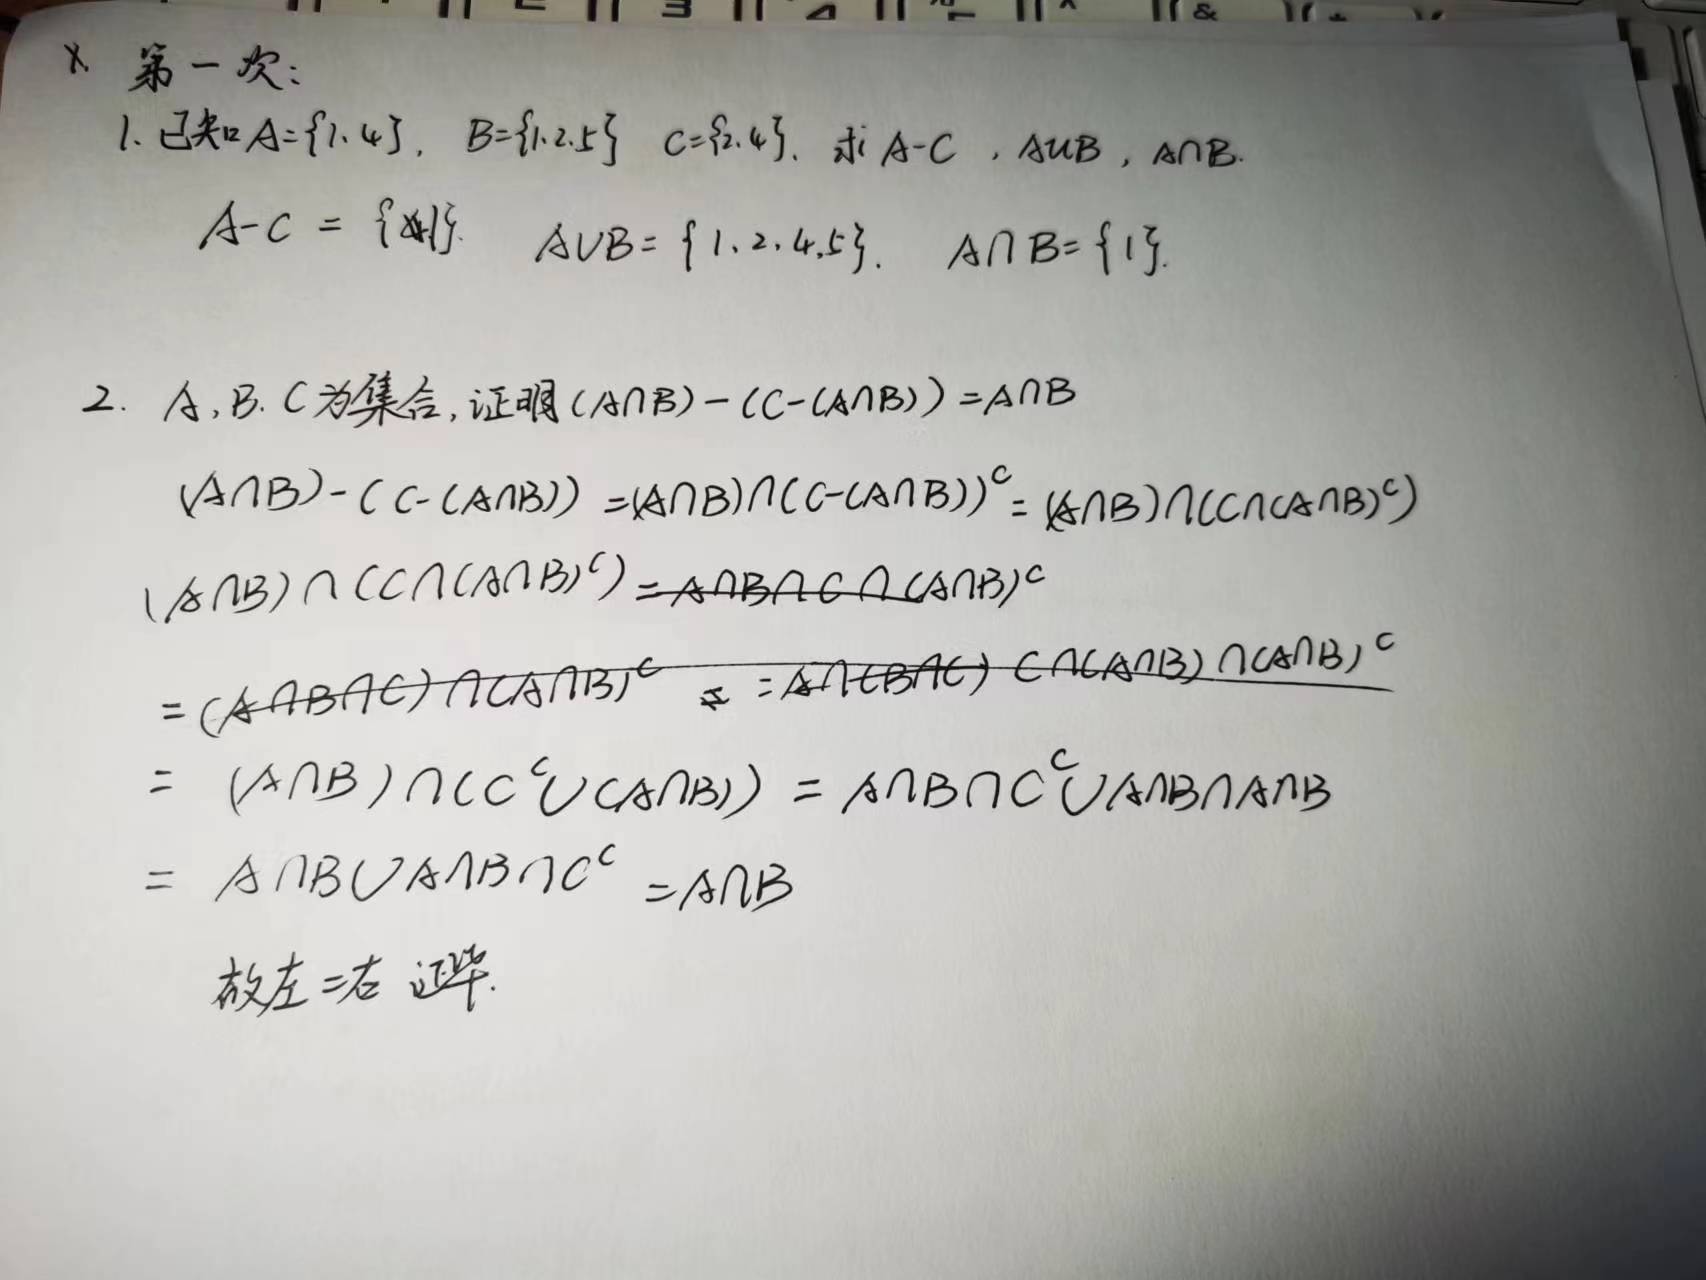 第一次:
1. 已知A={1.4}. B={1.2.5} C={2.4}. 求 A-C , A∪B , A∩B.
A-C = {1}. A∪B = {1.2.4.5}. A∩B={1}.
2. A, B. C为集合,证明(A∩B)-(C-(A∩B))=A∩B
(A∩B)-(C-(A∩B)) =(A∩B)∩(C-(A∩B))ᶜ = (A∩B)∩(C∩(A∩B)ᶜ)
(A∩B)∩(C∩(A∩B)ᶜ) = A∩B∩C∩(A∩B)ᶜ
= (A∩B∩C)∩(A∩B)ᶜ = A∩(B∩C) C∩(A∩B)∩(A∩B)ᶜ
= (A∩B)∩(Cᶜ∪(A∩B)) = A∩B∩Cᶜ∪A∩B∩A∩B
= A∩B∪A∩B∩Cᶜ =A∩B
故左=右 证毕.